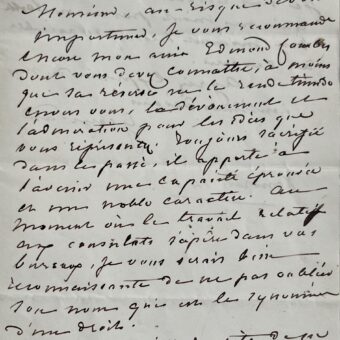 Monsieur, au risque de vous
importuner, je vous recommande
encore mon ami Edmond Combes
dont vous devez connaître, à moins
que sa réserve ne le rende timide
envers vous, le dévouement et
l'admiration pour les idées que
vous représentez. Toujours sacrifié
dans le passé, il apporte à
l'avenir une capacité éprouvée
et un noble caractère. Au
moment où le travail relatif
aux consulats s'opère dans vos
bureaux, je vous serais bien
reconnaissante de ne pas oublier
son nom qui est le synonime
d'un droit.